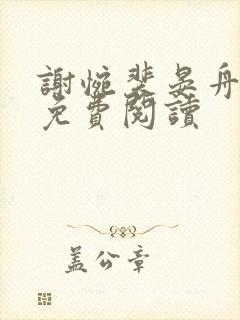 謝惋裴晏舟
免費閱讀
蓋公章